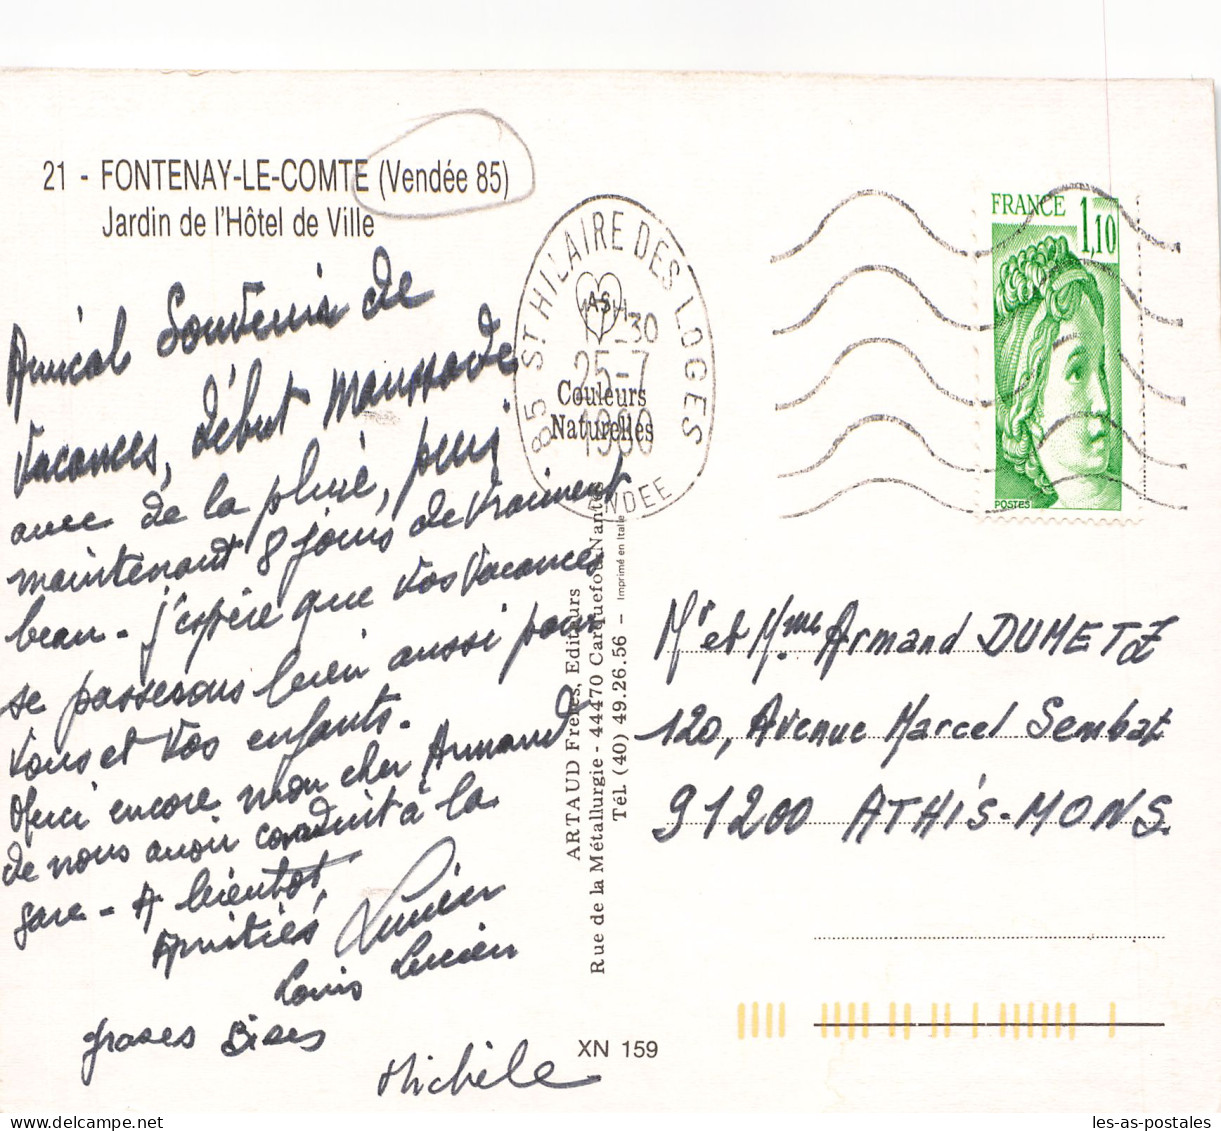 21 - FONTENAY-LE-COMTE (Vendée 85)
Jardin de l'Hôtel de Ville
Amical Souvenir de
Vacances, début maussade
avec de la pluie, puis
maintenant 8 jours de vraiment
beau - j'espère que vos vacances
se passerons bien aussi pour
vous et vos enfants.
Merci encore mon cher Armand
de nous avoir conduit à la
gare - A bientot,
Amitiés, Lucien
Louis Lucien
groses Bises
Michèle
85 ST HILAIRE DES LOGES
25-7
1980
VENDEE
Couleurs
Naturelles
ARTAUD Frères, Editeurs
Rue de la Métallurgie - 44470 Carquefou-Nantes
Tél (40) 49.26.56 - Imprimé en Italie
XN 159
FRANCE 1,10
POSTES
Mr et Mme Armand DUMETZ
120, Avenue Marcel Sembat
91200 ATHIS-MONS
les-as-postales